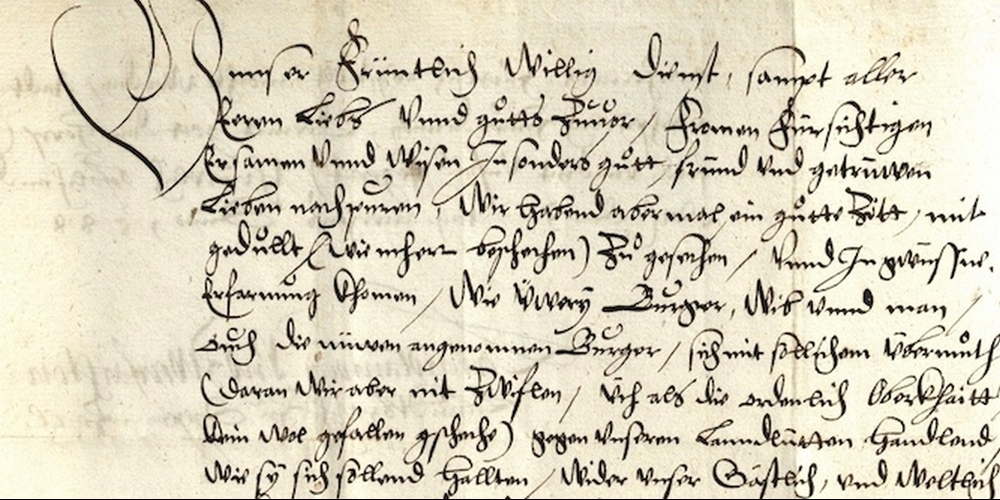 Unnser früntlich willig dienst, sampt aller
Eeren Liebs vnnd gůtts zůuor / Fromen Fürsichtigen
Ersamen vnnd Wysen Insonders gůtt fründ vnd getrüwen
Lieben nachpuren, Wir habend abermal ein gůtte Zÿtt, mit
gedullt (wie meher beschechen) Zů gesechen / vnnd In gwüsse
Erfarnung khomen / Wie Üwery Burger, Wib vnnd man /
ouch die nüwen angenomnen Burger / sich mit sölichem Übermůth
(daran wir aber nit Zwÿflen / üch als die ordenlich Oberkhaitt
kein wol gefallen gscheche) gegen vnseren Lanndlütten handlend
wie sÿ sich sollend hallten / wider vnser Gaistlich, vnd Weltlich